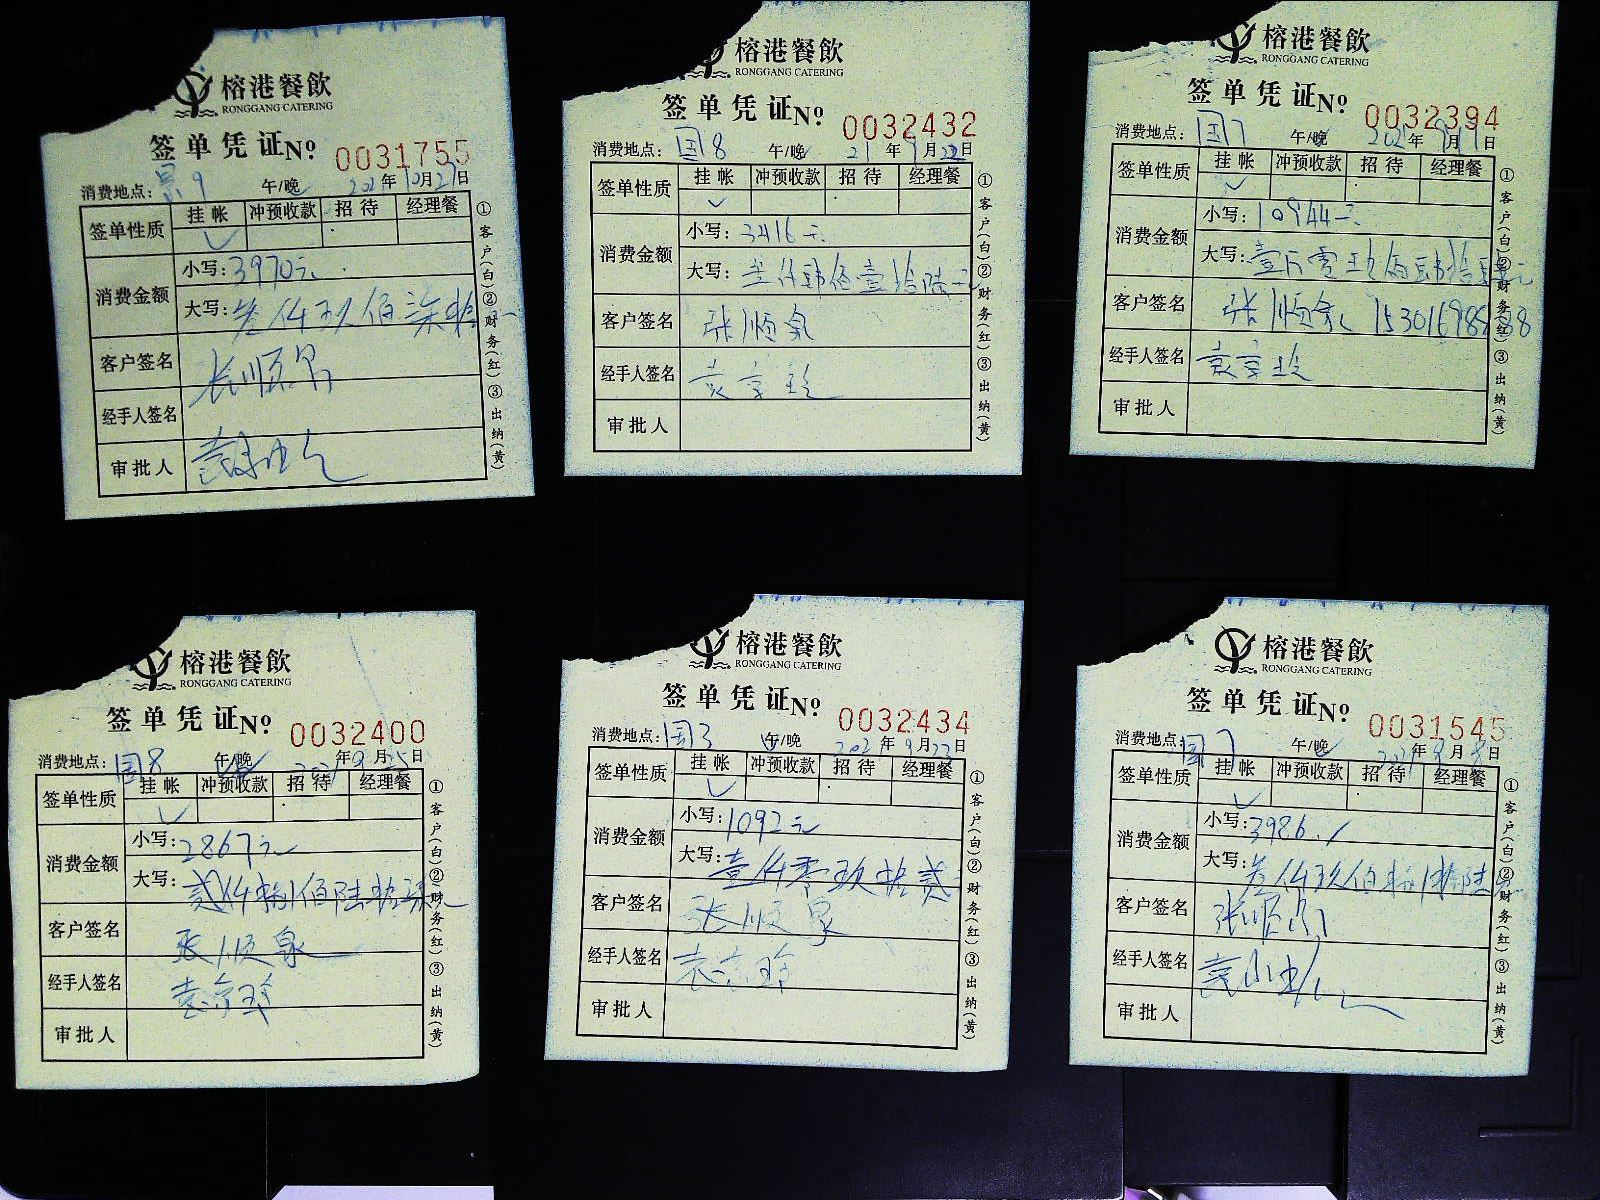 榕港餐飲
RONGGANG CATERING
签单凭证No 0031755
消费地点: 景9 午/晚 2021年10月27日
签单性质 挂帐 冲预收款 招待 经理餐
消费金额 小写: 3970元
大写: 叁仟玖佰柒拾
客户签名 张顺泉
经手人签名
审批人
①客户(白)②财务(红)③出纳(黄)
榕港餐飲
RONGGANG CATERING
签单凭证No 0032432
消费地点: 国8 午/晚 21年9月22日
签单性质 挂帐 冲预收款 招待 经理餐
消费金额 小写: 3416元
大写: 叁仟肆佰壹拾陆元
客户签名 张顺泉
经手人签名 袁京玲
审批人
①客户(白)②财务(红)③出纳(黄)
榕港餐飲
RONGGANG CATERING
签单凭证No 0032394
消费地点: 国7 午/晚 2021年9月17日
签单性质 挂帐 冲预收款 招待 经理餐
消费金额 小写: 10944元
大写: 壹万零玖佰肆拾肆元
客户签名 张顺泉
经手人签名 袁京玲
审批人
①客户(白)②财务(红)③出纳(黄)
榕港餐飲
RONGGANG CATERING
签单凭证No 0032400
消费地点: 国8 午/晚 2021年9月25日
签单性质 挂帐 冲预收款 招待 经理餐
消费金额 小写: 2867元
大写: 贰仟捌佰陆拾柒元
客户签名 张顺泉
经手人签名 袁京玲
审批人
①客户(白)②财务(红)③出纳(黄)
榕港餐飲
RONGGANG CATERING
签单凭证No 0032434
消费地点: 国3 午/晚 2021年9月22日
签单性质 挂帐 冲预收款 招待 经理餐
消费金额 小写: 1092元
大写: 壹仟零玖拾贰
客户签名 张顺泉
经手人签名 袁京玲
审批人
①客户(白)②财务(红)③出纳(黄)
榕港餐飲
RONGGANG CATERING
签单凭证No 0031545
消费地点: 国7 午/晚 2021年9月8日
签单性质 挂帐 冲预收款 招待 经理餐
消费金额 小写: 3986.
大写: 叁仟玖佰捌拾陆
客户签名 张顺泉
经手人签名
审批人
①客户(白)②财务(红)③出纳(黄)